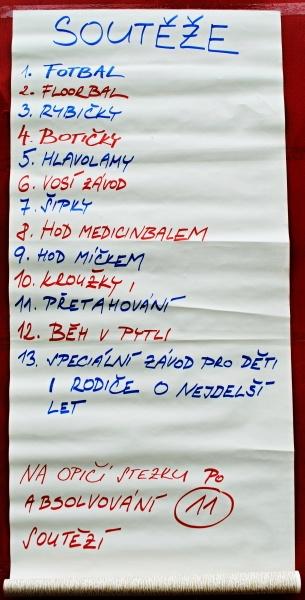 SOUTĚŽE
1. FOTBAL
2. FLOORBAL
3. RYBIČKY
4. BOTIČKY
5. HLAVOLAMY
6. VOSÍ ZÁVOD
7. ŠIPKY
8. HOD MEDICINBALEM
9. HOD MÍČKEM
10. KROUŽKY I
11. PŘETAHOVÁNÍ
12. BĚH V PYTLI
13. SPECIÁLNÍ ZÁVOD PRO DĚTI
I RODIČE O NEJDELŠÍ
LET
NA OPIČÍ STEZKU PO
ABSOLVOVÁNÍ 11
SOUTĚŽÍ